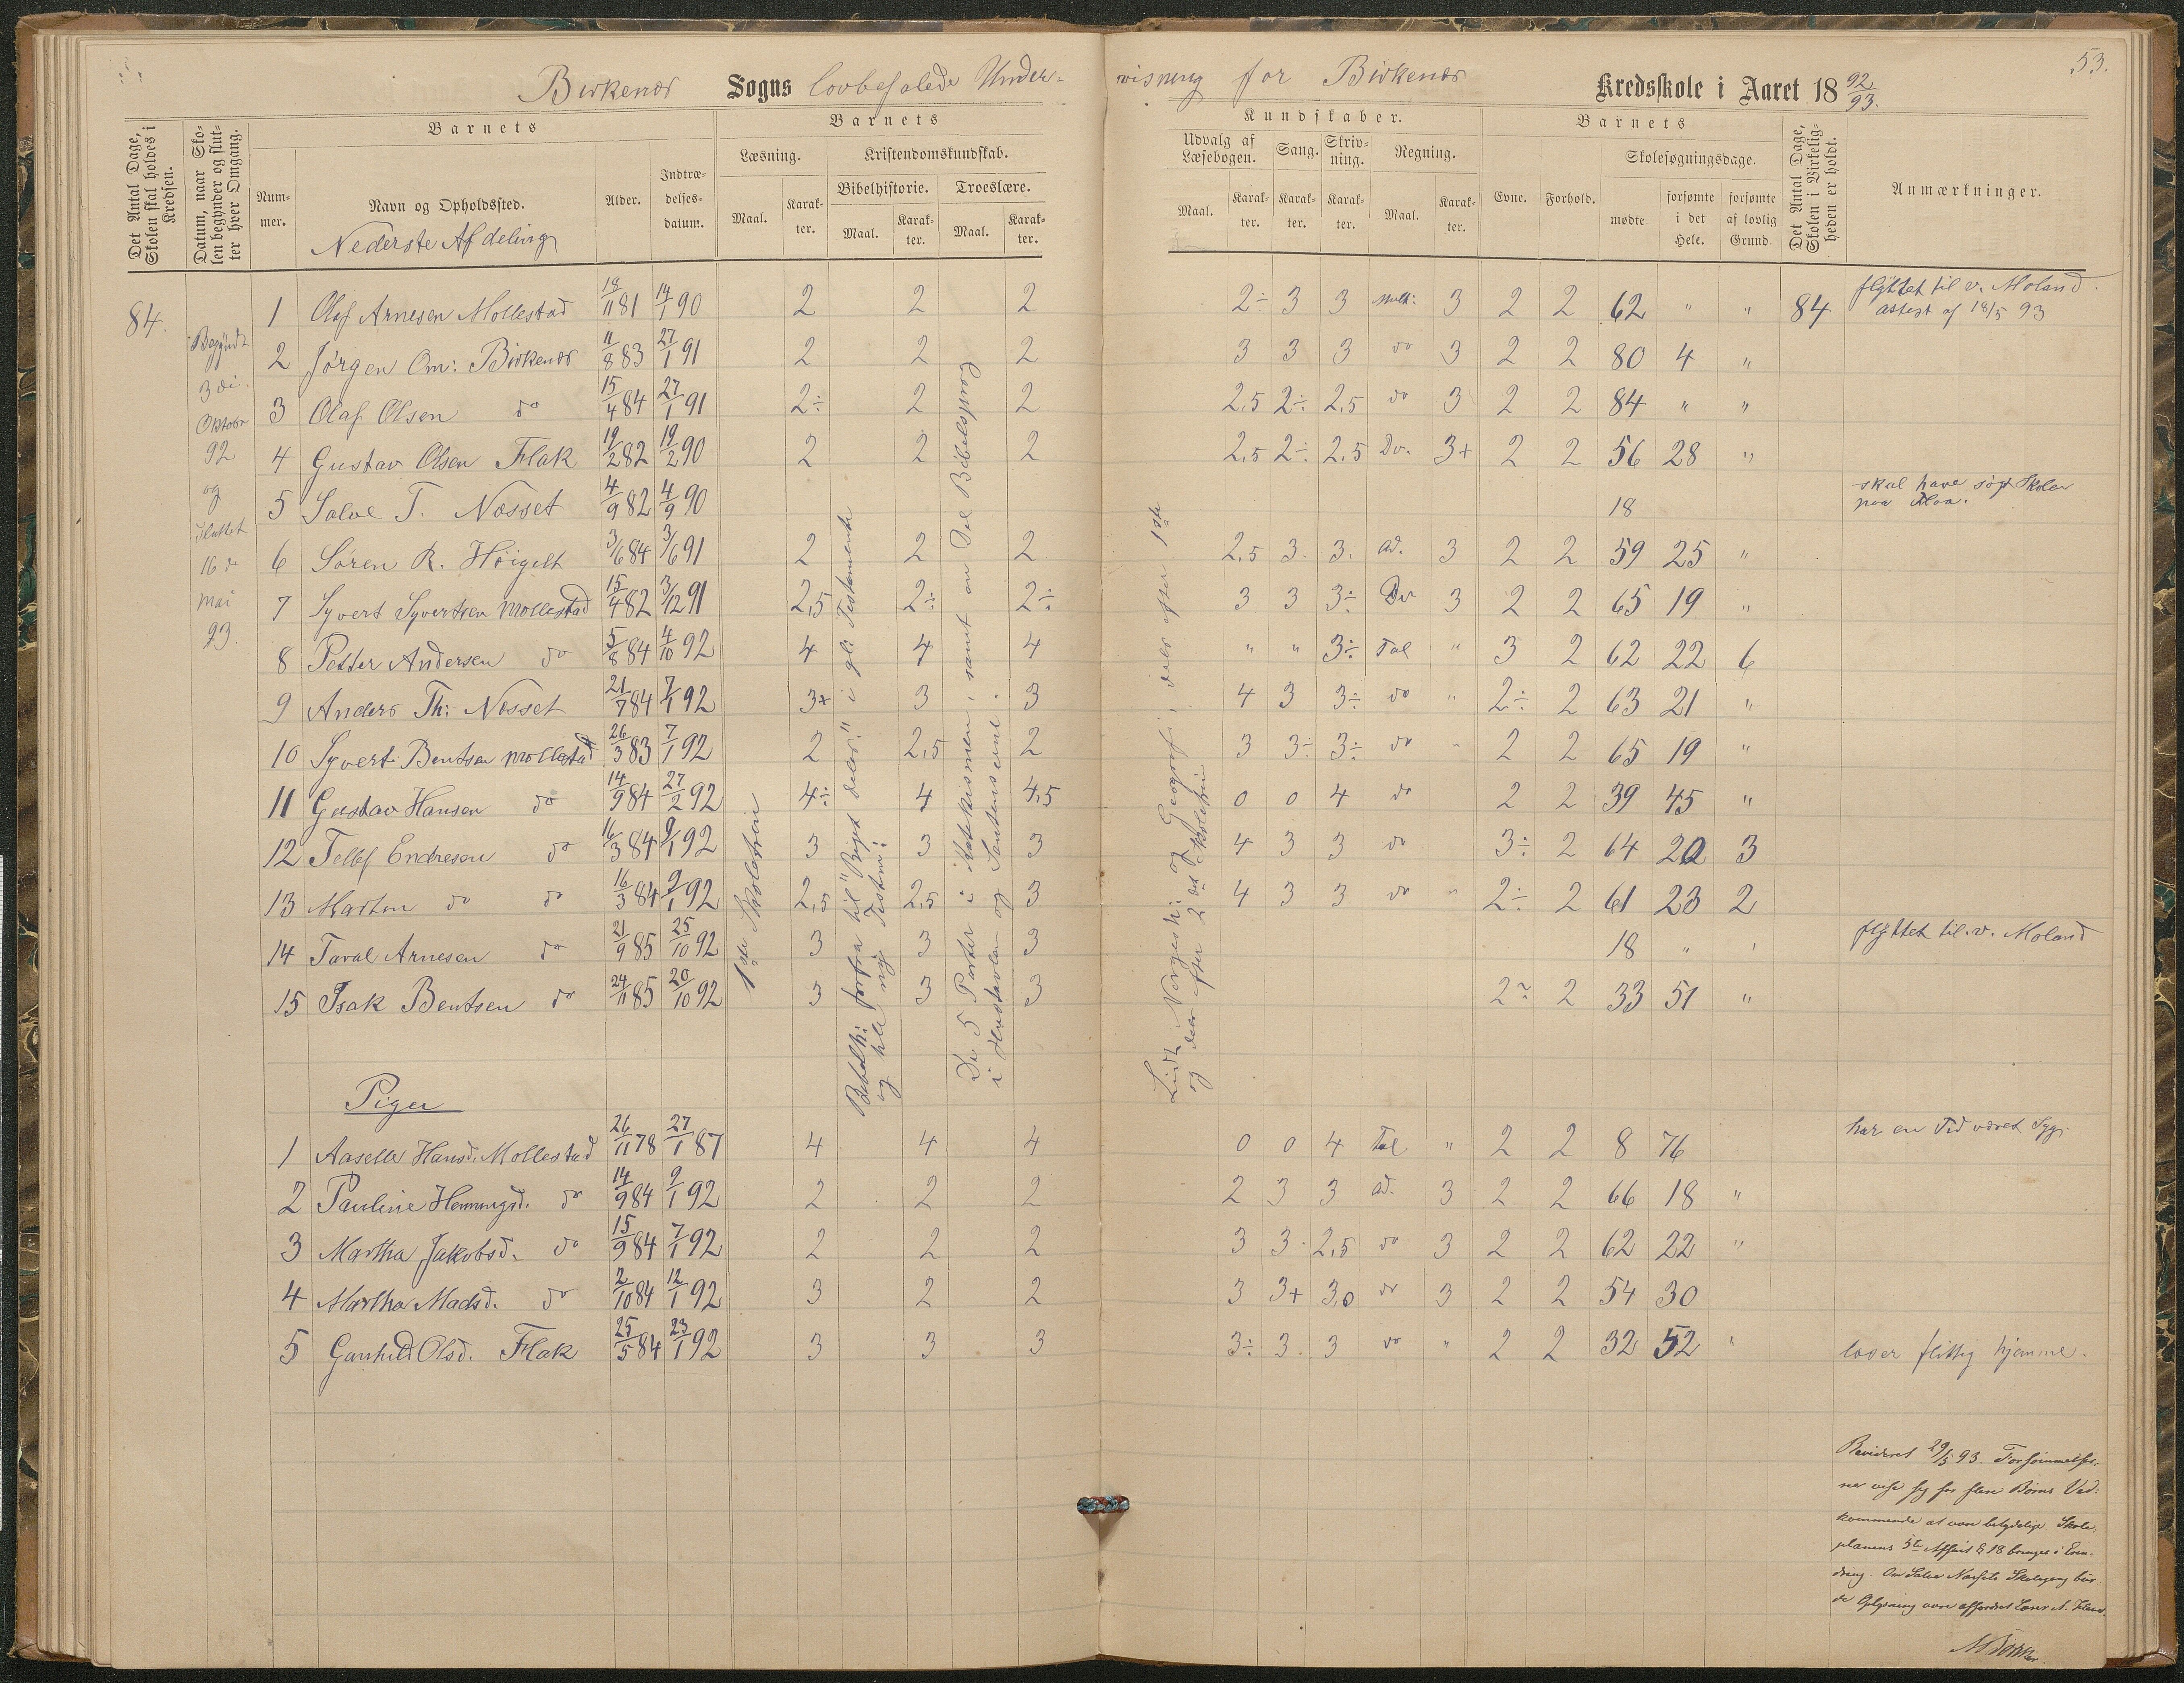 53.
Birkenæs Sogns lovbefalede Under-
visning for Birkenæs Kredsskole i Aaret 18 92/93.
Det Antal Dage, Skolen skal holdes i Kredsen.
Datum, naar Skolen begynder og slutter hver Omgang.
Barnets
Nummer.
Navn og Opholdssted.
Nederste Afdeling
Alder.
Indtrædelsesdatum.
Barnets
Læsning.
Kristendomskundskab.
Bibelhistorie.
Troeslære.
Maal.
Karakter.
Maal.
Karakter.
Maal.
Karakter.
Kundskaber.
Udvalg af Læsebogen.
Sang.
Skrivning.
Regning.
Maal.
Karakter.
Karakter.
Karakter.
Maal.
Karakter.
Barnets
Evne.
Forhold.
Skolesøgningsdage.
mødte
forsømte i det Hele.
forsømte af lovlig Grund.
Det Antal Dage, Skolen i Virkeligheden er holdt.
Anmærkninger.
84.
Begyndt
3 di.
Oktober
92
og
sluttet
16 de
mai
93.
1 Olaf Arnesen Mollestad 18/11 81 14/1 90 2 2 2 2÷ 3 3 Mult: 3 2 2 62 " " 84 flyttet til v. Moland. attest af 18/5 93
2 Jørgen Om: Birkenæs 11/8 83 27/1 91 2 2 2 3 3 3 do 3 2 2 80 4 "
3 Olaf Olsen do 15/4 84 27/1 91 2÷ 2 2 2,5 2÷ 2,5 do 3 2 2 84 " "
4 Gustav Olsen Flak 19/2 82 19/2 90 2 2 2 2,5 2÷ 2,5 Do. 3+ 2 2 56 28 "
5 Salve T. Næsset 4/9 82 4/9 90 18 skal have søgt Skolen paa
6 Søren R. Høigelt 3/6 84 3/6 91 2 2 2 2,5 3. 3. ad. 3 2 2 59 25 "
7 Syvert Syvertsen Mollestad 15/4 82 3/12 91 2,5 2÷ 2÷ 3 3 3÷ Do 3 2 2 65 19 "
8 Petter Andersen do 5/8 84 4/10 92 4 4 4 " " 3÷ Tal " 3 2 62 22 6
9 Anders Th: Næsset 21/7 84 7/1 92 3+ 3 3 4 3 3÷ do " 2÷ 2 63 21 "
10 Syvert Bentsen Mollestad 26/3 83 7/1 92 2 2,5 2 3 3÷ 3÷ do " 2 2 65 19 "
11 Gustav Hansen do 14/9 84 27/2 92 4÷ 4 4,5 0 0 4 do 2 2 39 45 "
12 Tellef Endresen do 16/3 84 9/1 92 3 3 3 4 3 3 do 3÷ 2 64 20 3
13 Martin do do 16/3 84 9/1 92 2,5 2,5 3 4 3 3 do " 2÷ 2 61 23 2
14 Taral Arnesen do 21/9 85 25/10 92 3 3 3 18 " " flyttet til v. Moland
15 Isak Bentsen do 24/11 85 20/10 92 3 3 3 2÷ 2 33 51 "
1ste Skoletrin
Bibelh: forfra til "Riget deles" i gl: Testamente
og hele nij Testm:
De 5 Parter i Katekismen, samt en Del Bibelsprog
i Hustavlen og Sentenserne.
Lidt Norgesh: og Geografi, dels efter 1ste
og dels efter 2det Skoletrin
Piger
1 Aaselle Hansd. Mollestad 26/11 78 27/1 87 4 4 4 0 0 4 Tal " 2 2 8 76 har en Tid været Syg.
2 Pauline Hemmingsd. do 14/9 84 9/1 92 2 2 2 2 3 3 ad. 3 2 2 66 18 "
3 Martha Jakobsd. do 15/9 84 7/1 92 2 2 2 3 3. 2,5 do 3 2 2 62 22 "
4 Martha Madsd. do 2/10 84 12/1 92 3 2 2 3 3+ 3,0 do 3 2 2 54 30
5 Gunhild Olsd. Flak 25/5 84 23/1 92 3 3 3 3÷ 3. 3 do " 2 2 32 52 " læser flittig hjemme.
Revideret 29/5 93. Forsømmelser-
ne vise sig for flere Børns Ved-
kommende at være betydelige. Skole-
planens 5te Afsnit § 18 bringes i Erin-
dring. Om Salve Næssets Skolegang bur-
de Oplysning være affordret Lærer